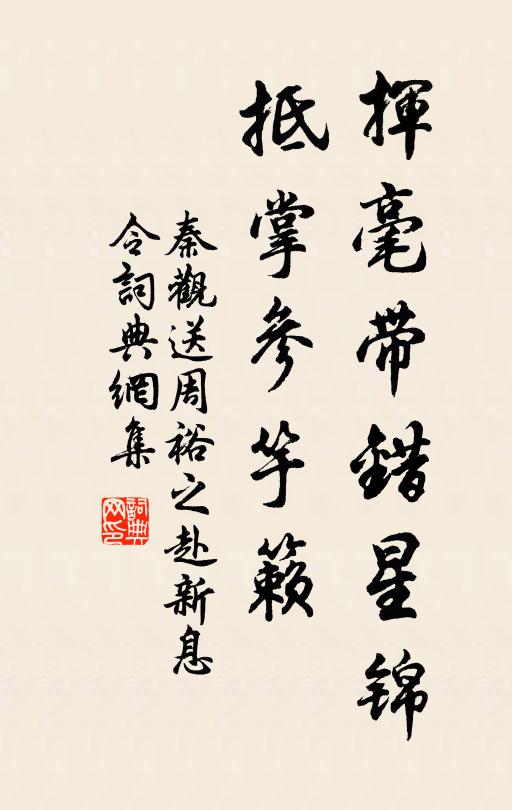 揮毫帶錯星锦
抵掌參竽籟
秦觀送周裕之赴新息
令詞典網集
詞典
网印